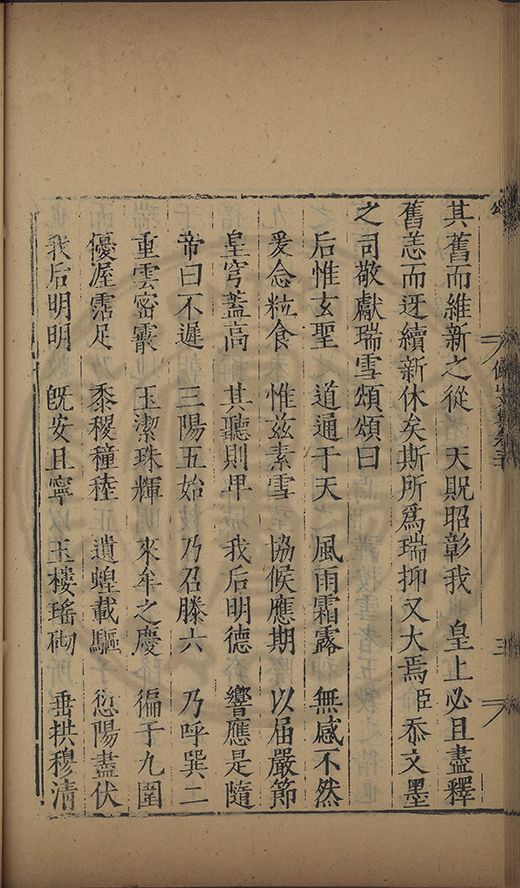 其舊而維新之從 天貺昭彰我 皇上必且盡釋
舊恙而迓續新休矣斯所爲瑞抑又大焉臣忝文墨
之司敬獻瑞雪頌頌曰
后惟玄聖 道通于天 風雨霜露 無感不然
爰念粒食 惟兹素雪 協候應期 以届嚴節
皇穹蓋高 其聽則卑 我后明德 響應是隨
帝曰不遲 三陽五始 乃召滕六 乃呼巽二
重雲密霰 玉潔珠輝 來牟之慶 徧于九圍
優渥霑足 黍稷穜稑 遺蝗載驅 愆陽盡伏
我后明明 旣安且寧 玉樓瑤砌 垂拱穆清